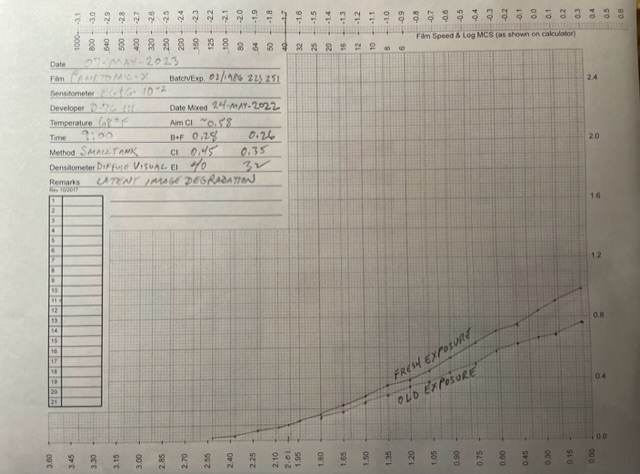 -3.1 -3.0 -2.9 -2.8 -2.7 -2.6 -2.5 -2.4 -2.3 -2.2 -2.1 -2.0 -1.9 -1.8 -1.7 -1.6 -1.5 -1.4 -1.3 -1.2 -1.1 -1.0 -0.9 -0.8 -0.7 -0.6 -0.5 -0.4 -0.3 -0.2 -0.1 0.0 0.1 0.2 0.3 0.4 0.5 0.6
1000 800 640 500 400 320 250 200 160 125 100 80 64 50 40 32 25 20 16 12 10 8 6
Film Speed & Log MCS (as shown on calculator)
Date 07-MAY-2023
Film PANATOMIC-X Batch/Exp. 02/1986 223 251
Sensitometer EG&G 10-2
Developer D-76 1:1 Date Mixed 24-MAY-2022
Temperature 68°F Aim CI ~0.58
Time 9:00 B+F 0.28 0.26
Method SMALL TANK CI 0.45 0.35
Densitometer DIFFUSE VISUAL EI 40 32
Remarks LATENT IMAGE DEGRADATION
Rev 10/2017
1
2
3
4
5
6
7
8
9
10
11
12
13
14
15
16
17
18
19
20
21
2.4
2.0
1.6
1.2
0.8
0.4
0.0
FRESH EXPOSURE
OLD EXPOSURE
3.60 3.45 3.30 3.15 3.00 2.85 2.70 2.55 2.40 2.25 2.10 2.01 1.95 1.80 1.65 1.50 1.35 1.20 1.05 0.90 0.75 0.60 0.45 0.30 0.15 0.00